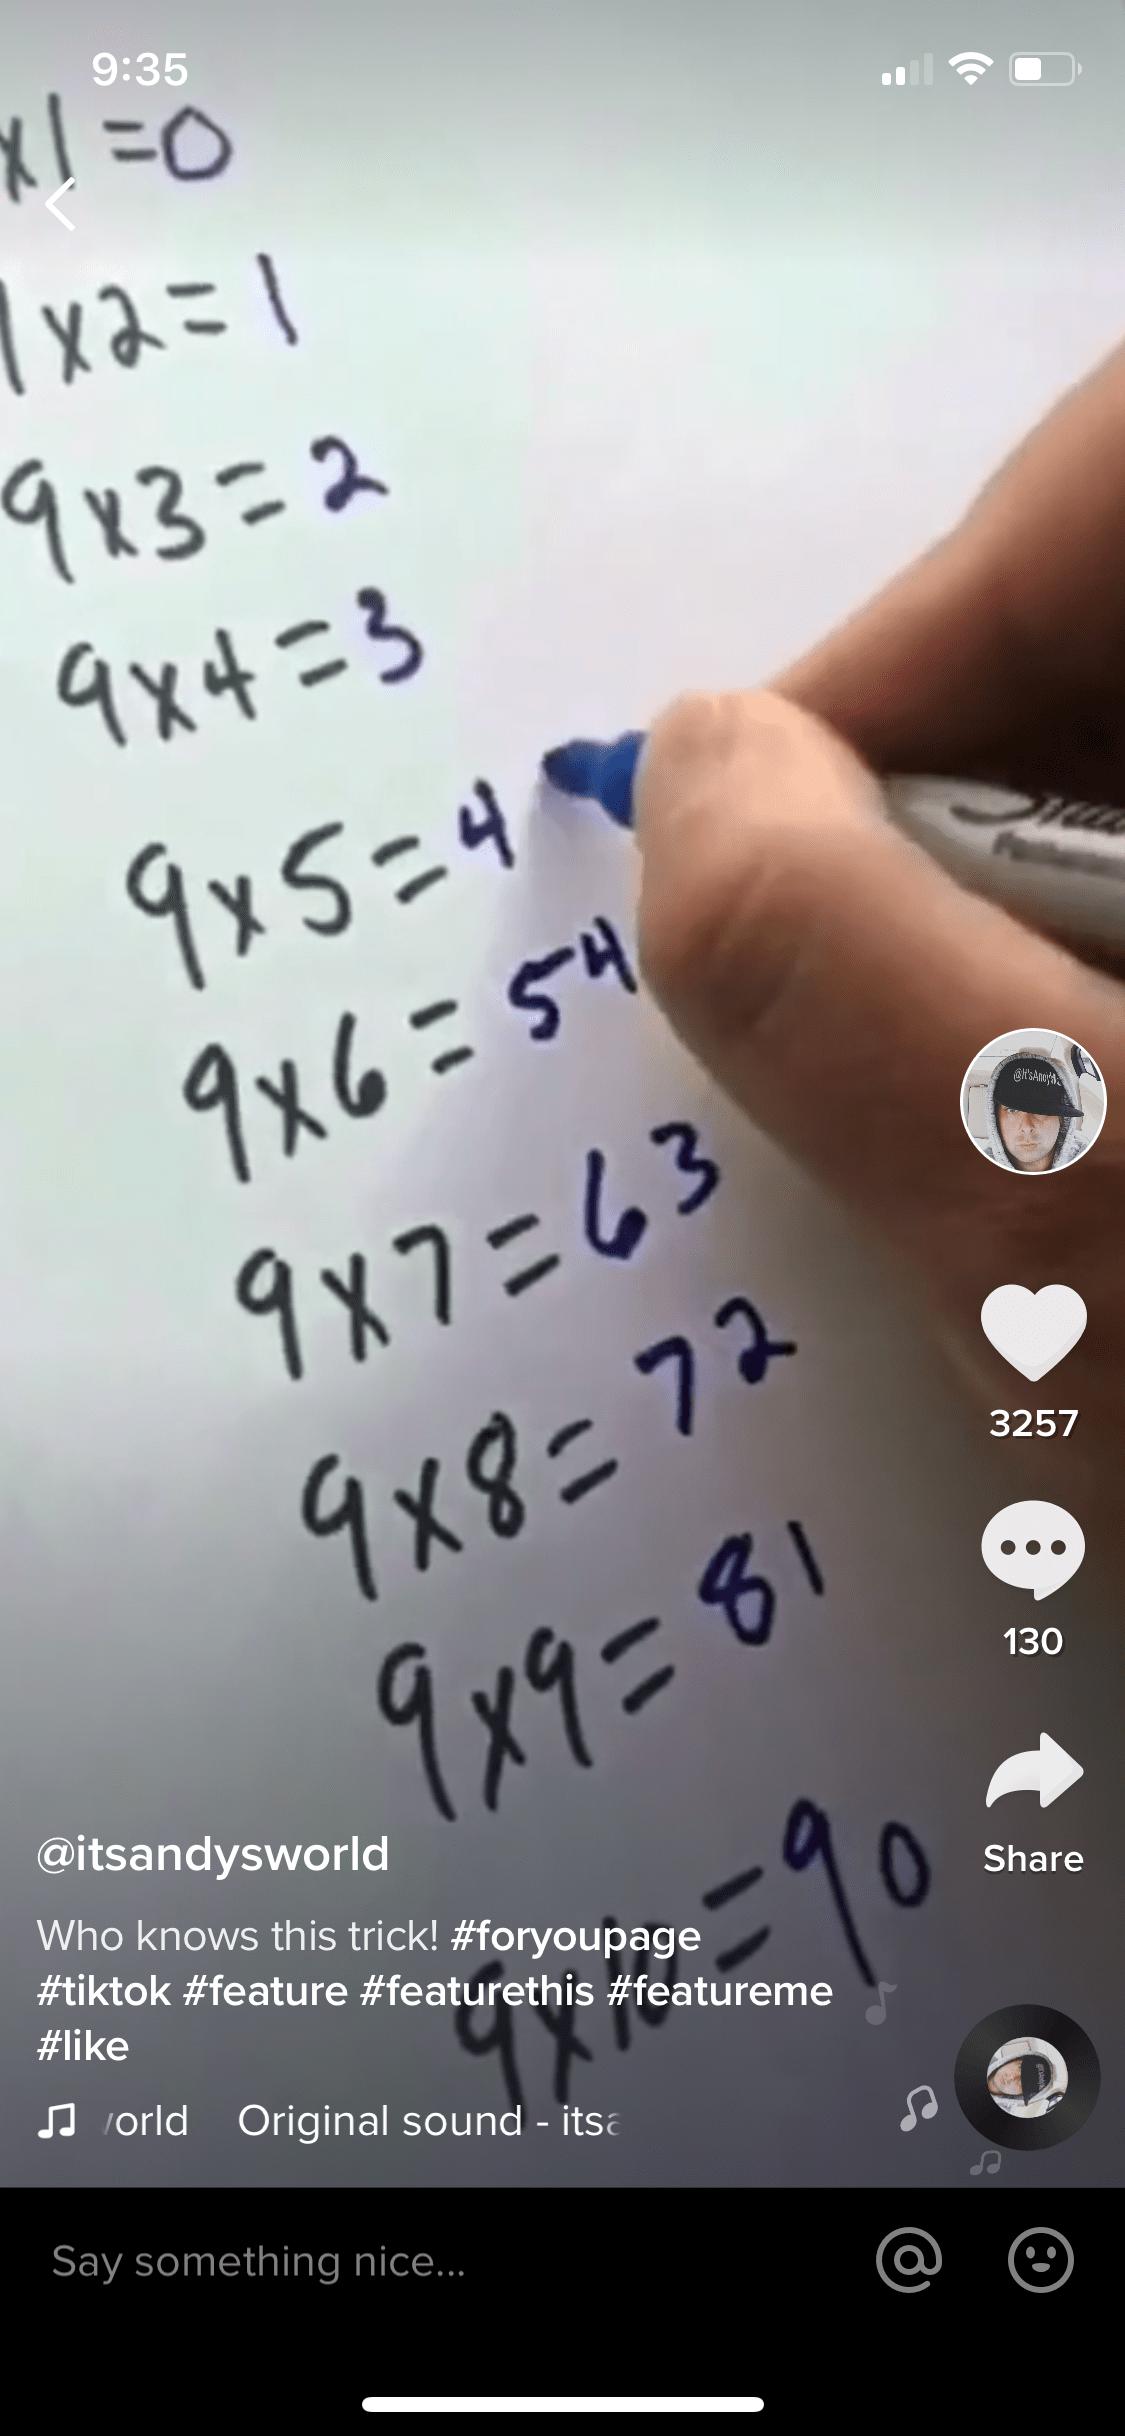 9:35
x1=0
x2=1
9x3=2
9x4=3
9x5=4
9x6=54
9x7=63
9x8=72
9x9=81
9x10=90
@It'sAndy's
3257
130
Share
@itsandysworld
Who knows this trick! #foryoupage
#tiktok #feature #featurethis #featureme
#like
orld Original sound - itsa
Say something nice...